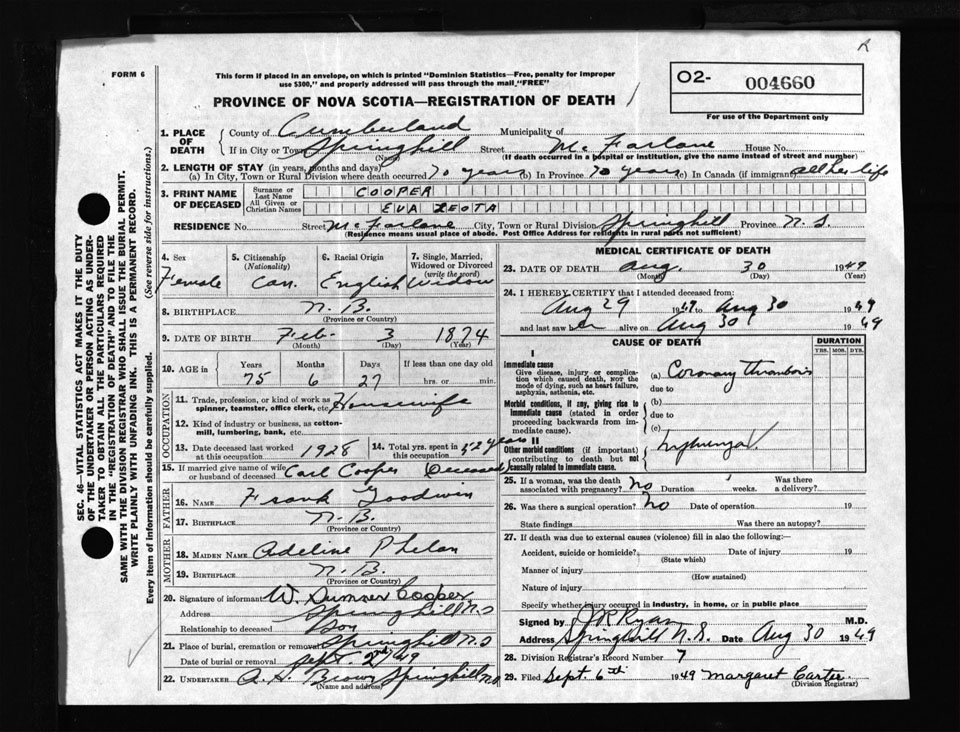 R
FORM 6
This form if placed in an envelope, on which is printed "Dominion Statistics—Free, penalty for improper
use $300," and properly addressed will pass through the mail "FREE"
PROVINCE OF NOVA SCOTIA—REGISTRATION OF DEATH
O2- 004660
For use of the Department only
1. PLACE OF DEATH
County of Cumberland Municipality of
If in City or Town Springhill Street McFarlane House No.
(Name) (If death occurred in a hospital or institution, give the name instead of street and number)
2. LENGTH OF STAY (in years, months and days)
(a) In City, Town or Rural Division where death occurred 70 years (b) In Province 70 years (c) In Canada (if immigrant) all her life
3. PRINT NAME OF DECEASED
Surname or Last Name COOPER
All Given or Christian Names EVA LEOTA
RESIDENCE No. Street McFarlane City, Town or Rural Division Springhill Province N.S.
(Residence means usual place of abode. Post Office Address for residents in rural parts not sufficient)
4. Sex Female
5. Citizenship (Nationality) Can.
6. Racial Origin English
7. Single, Married, Widowed or Divorced (write the word) Widow
8. BIRTHPLACE N.B.
(Province or Country)
9. DATE OF BIRTH Feb. 3 1874
(Month) (Day) (Year)
10. AGE in Years Months Days If less than one day old
75 6 27 hrs. or min.
OCCUPATION
11. Trade, profession, or kind of work as spinner, teamster, office clerk, etc. Housewife
12. Kind of industry or business, as cotton-mill, lumbering, bank, etc.
13. Date deceased last worked at this occupation 1928
14. Total yrs. spent in this occupation 52 years
15. If married give name of wife or husband of deceased Carl Cooper (Deceased)
FATHER
16. NAME Frank Goodwin
17. BIRTHPLACE N.B.
(Province or Country)
MOTHER
18. MAIDEN NAME Adeline Phelan
19. BIRTHPLACE N.B.
(Province or Country)
20. Signature of informant W. Sumner Cooper
Address Springhill N.S
Relationship to deceased Son
21. Place of burial, cremation or removal Springhill N.S
Date of burial or removal Sept. 2nd/49
22. UNDERTAKER A. H. Brown Springhill N.S
(Name and address)
MEDICAL CERTIFICATE OF DEATH
23. DATE OF DEATH Aug. 30 1949
(Month) (Day) (Year)
24. I HEREBY CERTIFY that I attended deceased from:
Aug 29 1949 to Aug 30 1949
and last saw her alive on Aug 30 1949
CAUSE OF DEATH
DURATION
YRS. MOS. DYS.
I
Immediate cause
Give disease, injury or complication which caused death, NOT the mode of dying, such as heart failure, asphyxia, asthenia, etc.
(a) Coronary Thrombosis
due to
Morbid conditions, if any, giving rise to immediate cause (stated in order proceeding backwards from immediate cause).
(b)
due to
(c)
II
Other morbid conditions (if important) contributing to death but not causally related to immediate cause.
25. If a woman, was the death associated with pregnancy? No Duration weeks. Was there a delivery?
26. Was there a surgical operation? No Date of operation 19
State findings Was there an autopsy?
27. If death was due to external causes (violence) fill in also the following:
Accident, suicide or homicide? Date of injury 19
(State which)
Manner of injury
(How sustained)
Nature of injury
Specify whether injury occurred in industry, in home, or in public place
Signed by J R Ryan M.D.
Address Springhill N.S. Date Aug 30 1949
28. Division Registrar's Record Number 7
29. Filed Sept. 6th 1949 Margaret Carter
(Division Registrar)
SEC. 46—VITAL STATISTICS ACT MAKES IT THE DUTY
OF THE UNDERTAKER OR PERSON ACTING AS UNDER-
TAKER TO OBTAIN ALL THE PARTICULARS REQUIRED
IN THE "REGISTRATION OF DEATH" AND TO FILE THE
SAME WITH THE DIVISION REGISTRAR WHO SHALL ISSUE THE BURIAL PERMIT.
WRITE PLAINLY WITH UNFADING INK. THIS IS A PERMANENT RECORD.
Every item of information should be carefully supplied. (See reverse side for instructions.)